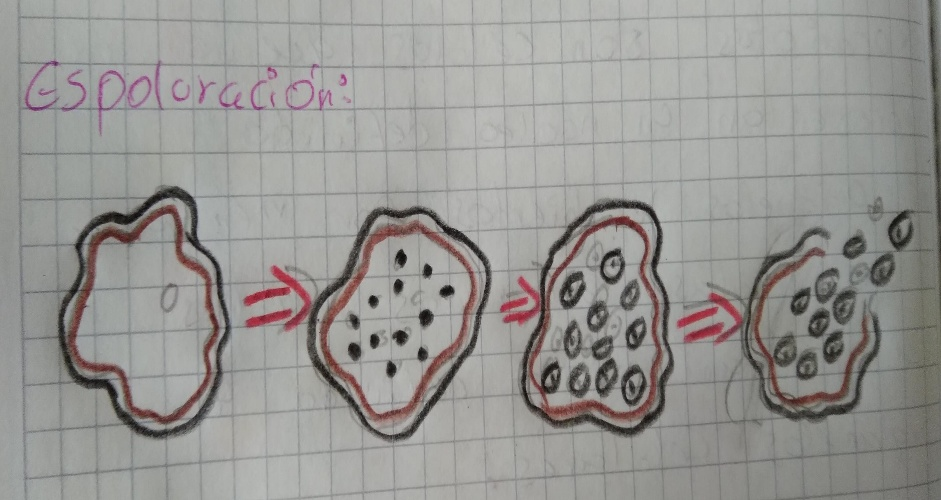 Espoloración: